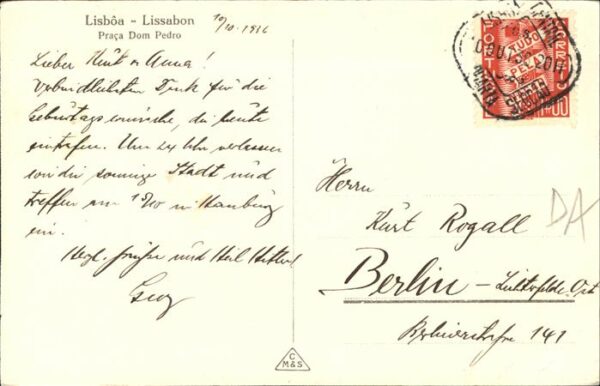 Lisbôa - Lissabon
Praça Dom Pedro
Lieber Kurt u. Anna!
Verbindlichsten Dank für die
Geburtstagswünsche, die heute
eintrafen. Um 24 Uhr verlassen
wir die sonnige Stadt und
treffen am 15/10 in Hamburg
ein.
Herzl. Grüße und Heil Hitler!
TUDO
PELA
NAÇÃO
Herrn
Kurt Rogall
Berlin - Lichterfelde Ost
Berlinerstraße 141
DA
C
M&S